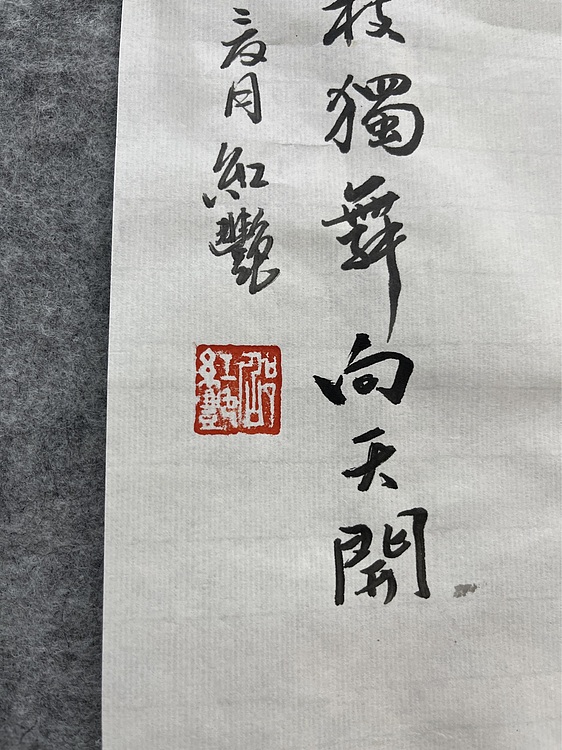 枝獨舞向天開
三月
紅艷
紅艷